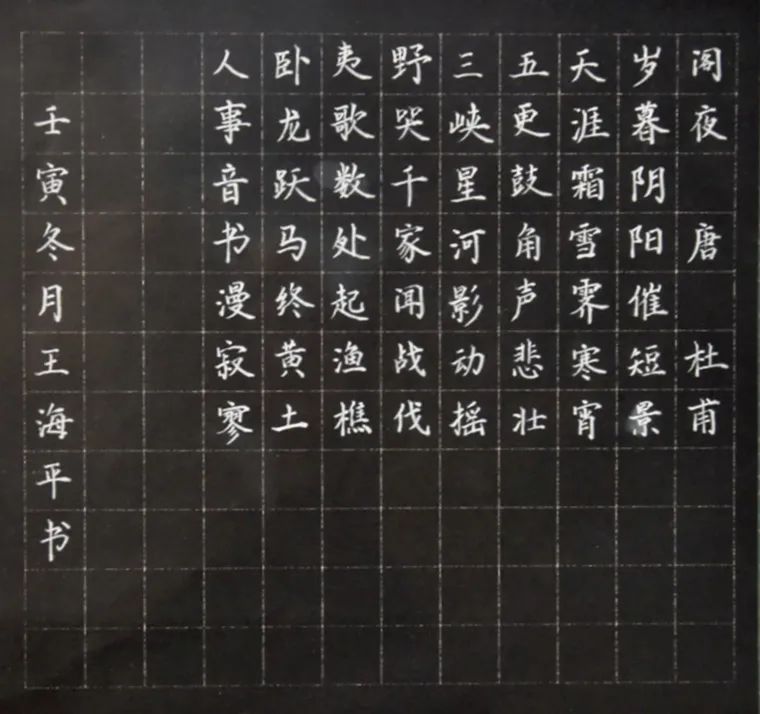 阁夜 唐 杜甫
岁暮阴阳催短景
天涯霜雪霁寒宵
五更鼓角声悲壮
三峡星河影动摇
野哭千家闻战伐
夷歌数处起渔樵
卧龙跃马终黄土
人事音书漫寂寥
壬寅冬月王海平书